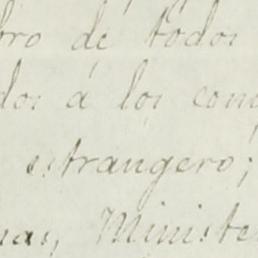 bro de todos
dos á los con
estrangero;
nas, Ministe